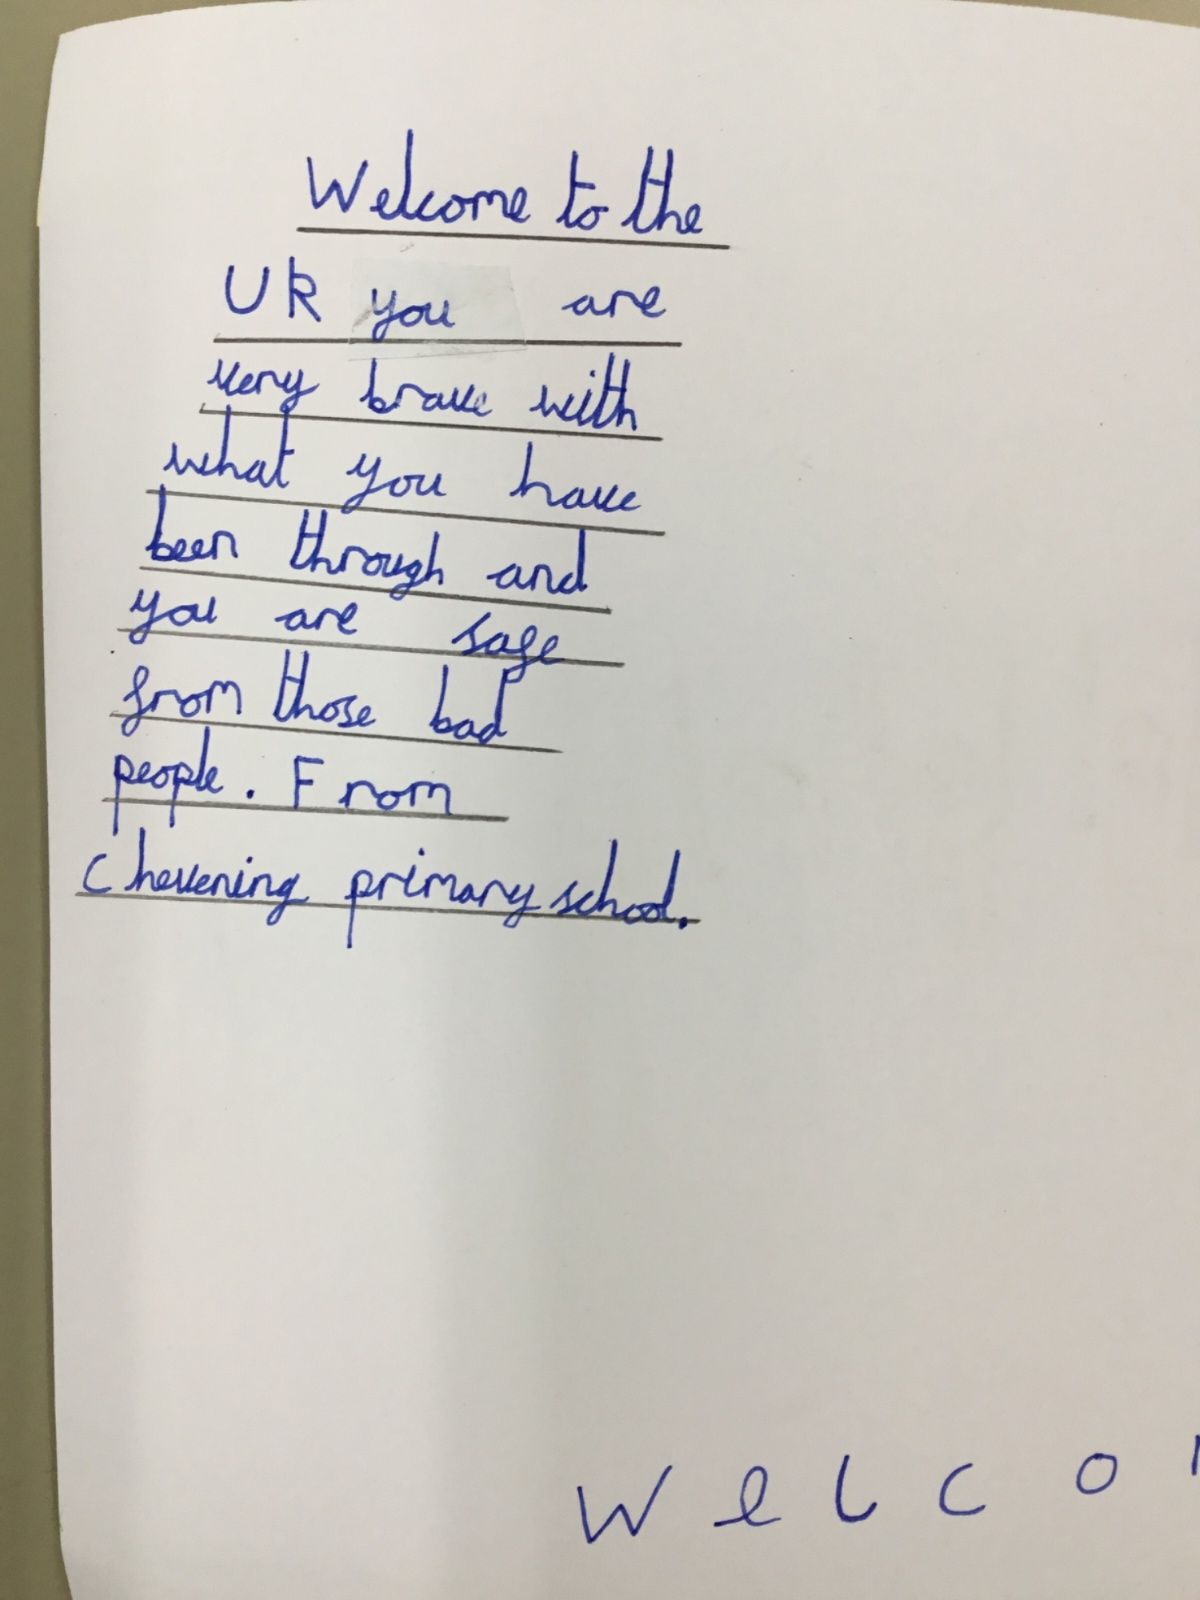 Welcome to the
UK you are
very brave with
what you have
been through and
you are safe
from those bad
people. From
Chevening primary school.
W e l c o